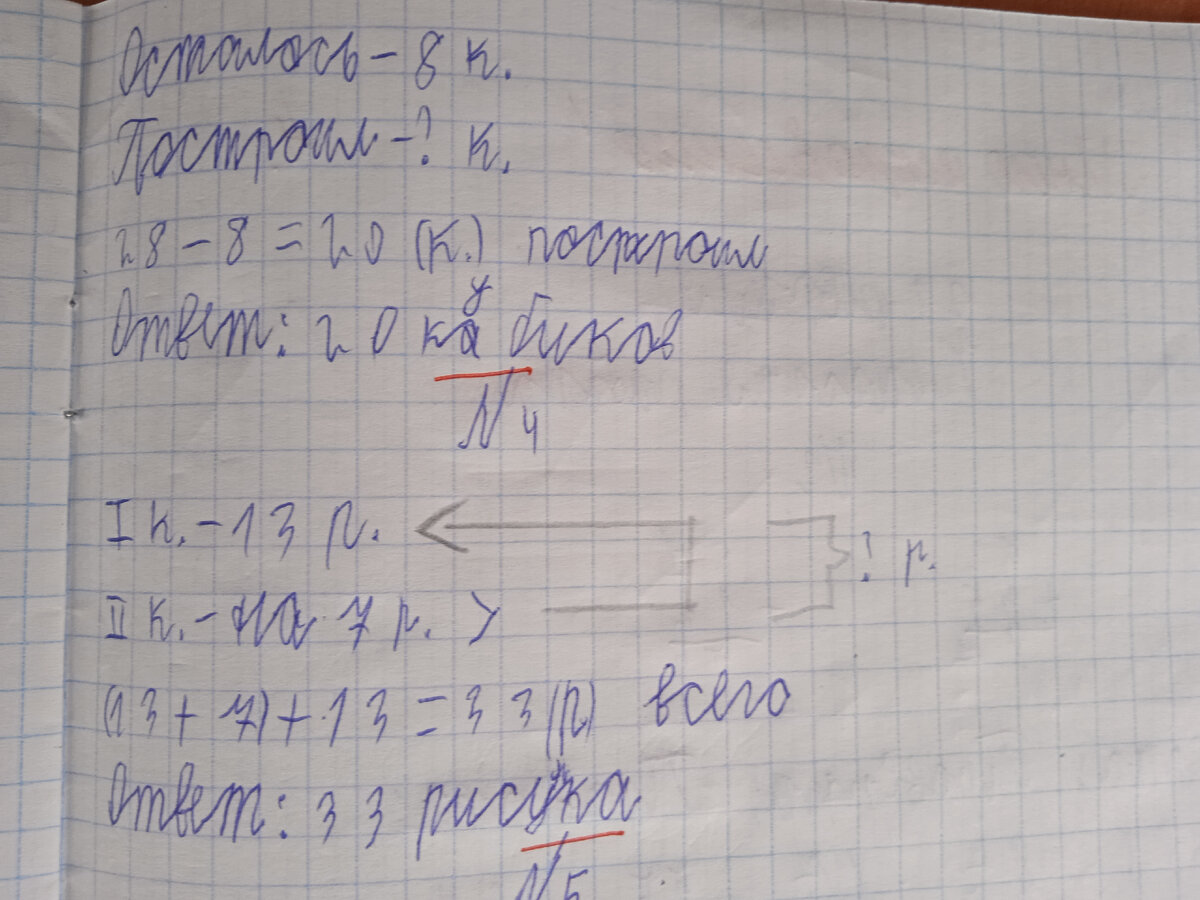 Осталось - 8 к.
Построил - ? к.
28 - 8 = 20 (к.) построил
Ответ: 20 кубиков
N 4
I к. - 13 р.
II к. - на 7 р. >
? р.
(13 + 7) + 13 = 33 (р) всего
Ответ: 33 рисунка
N 5